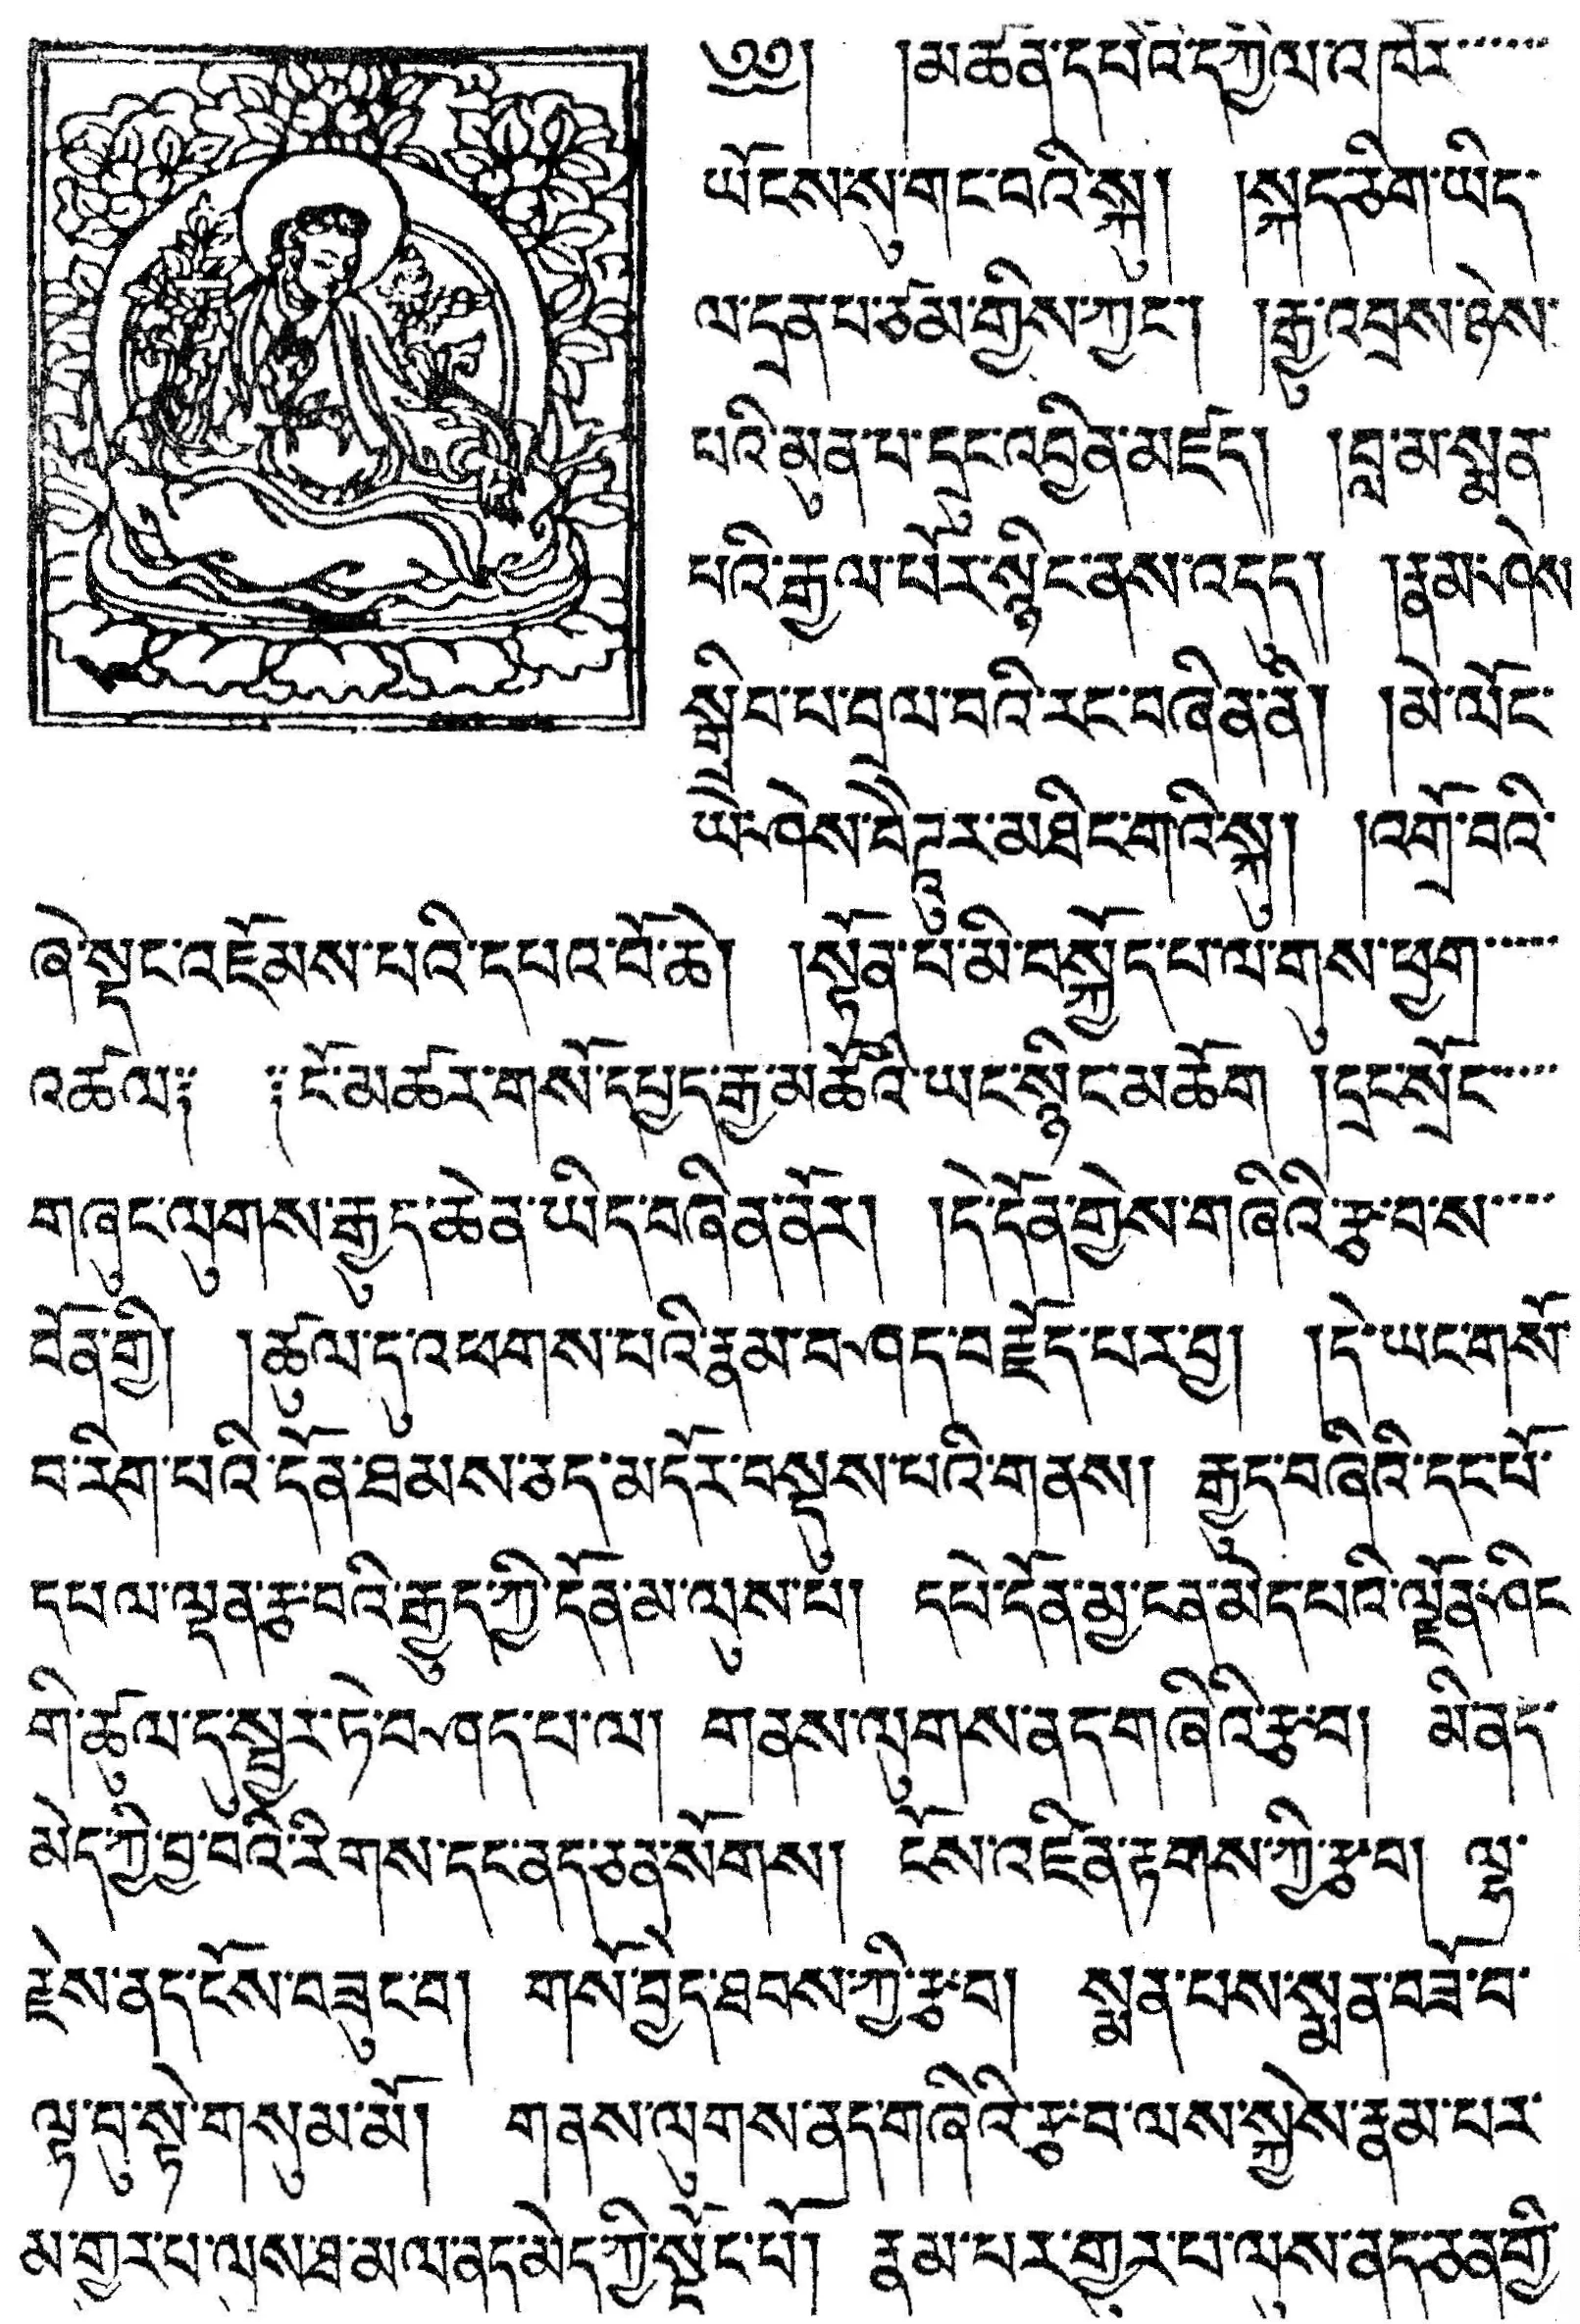 ༄༅། །མཚན་དཔེའི་དཀྱིལ་འཁོར་་་་་
ཡོངས་སུ་གང་བའི་སྐུ། །སྐད་ཅིག་ཡིད་
ལ་དྲན་པ་ཙམ་གྱིས་ཀྱང་། །རྒྱུ་འབྲས་ཉེས་
པའི་མུན་པ་དྲུང་འབྱིན་མཛད། །བླ་མ་སྨན་
པའི་རྒྱལ་པོར་སྙིང་ནས་འདུད། །རྣམ་ཤེས་
སྒྲིབ་པ་བྲལ་བའི་རང་བཞིན་ནི། །མེ་ལོང་
ཡེ་ཤེས་བཻཌཱུར་མཐིང་གའི་སྐུ། །འགྲོ་བའི་
ཞེ་སྡང་འཇོམས་པའི་དཔའ་བོ་ཆེ། །སྟོན་པ་མི་བསྐྱོད་པ་ལ་གུས་ཕྱག་་་་་
འཚལ༔ ༔ངོ་མཚར་གསོ་དཔྱད་རྒྱ་མཚོའི་ཡང་སྙིང་མཆོག །དྲང་སྲོང་་་་་
གཞུང་ལུགས་རྒྱུད་ཆེན་ཡིད་བཞིན་ནོར། །དེ་དོན་གྱེས་གཞིའི་རྩ་བ་ས་་་་་
བོན་གྱི། །ཚུལ་དུ་འཕགས་པའི་རྣམ་བཤད་བརྗོད་པར་བྱ། །དེ་ཡང་གསོ་
བ་རིག་པའི་དོན་ཐམས་ཅད་མདོར་བསྡུས་པའི་གནས། རྒྱུད་བཞིའི་དང་པོ་
དཔལ་ལྡན་རྩ་བའི་རྒྱུད་ཀྱི་དོན་མ་ལུས་པ། དཔེ་དོན་མྱ་ངན་མེད་པའི་ལྗོན་ཤིང་
གི་ཚུལ་དུ་སྦྱར་ཏེ་བཤད་པ་ལ། གནས་ལུགས་ནད་གཞིའི་རྩ་བ། མི་ནད་
མེད་ཀྱི་བྱ་བའི་རིགས་དང་ནད་ཅན་སོགས། ངོས་འཛིན་རྟགས་ཀྱི་རྩ་བ། ལྷ་
རྗེས་ནད་ངོས་བཟུང་བ། གསོ་བྱེད་ཐབས་ཀྱི་རྩ་བ། སྨན་པས་སྨན་བཟོ་བ་
ལྟ་བུ་སྟེ་གསུམ་མོ། གནས་ལུགས་ནད་གཞིའི་རྩ་བ་ལས་སྐྱེས་རྣམ་པར་
མ་གྱུར་པ་ལུས་ཐ་མལ་ནད་མེད་ཀྱི་སྡོང་པོ། རྣམ་པར་གྱུར་པ་ལུས་ནད་ཅན་གྱི་